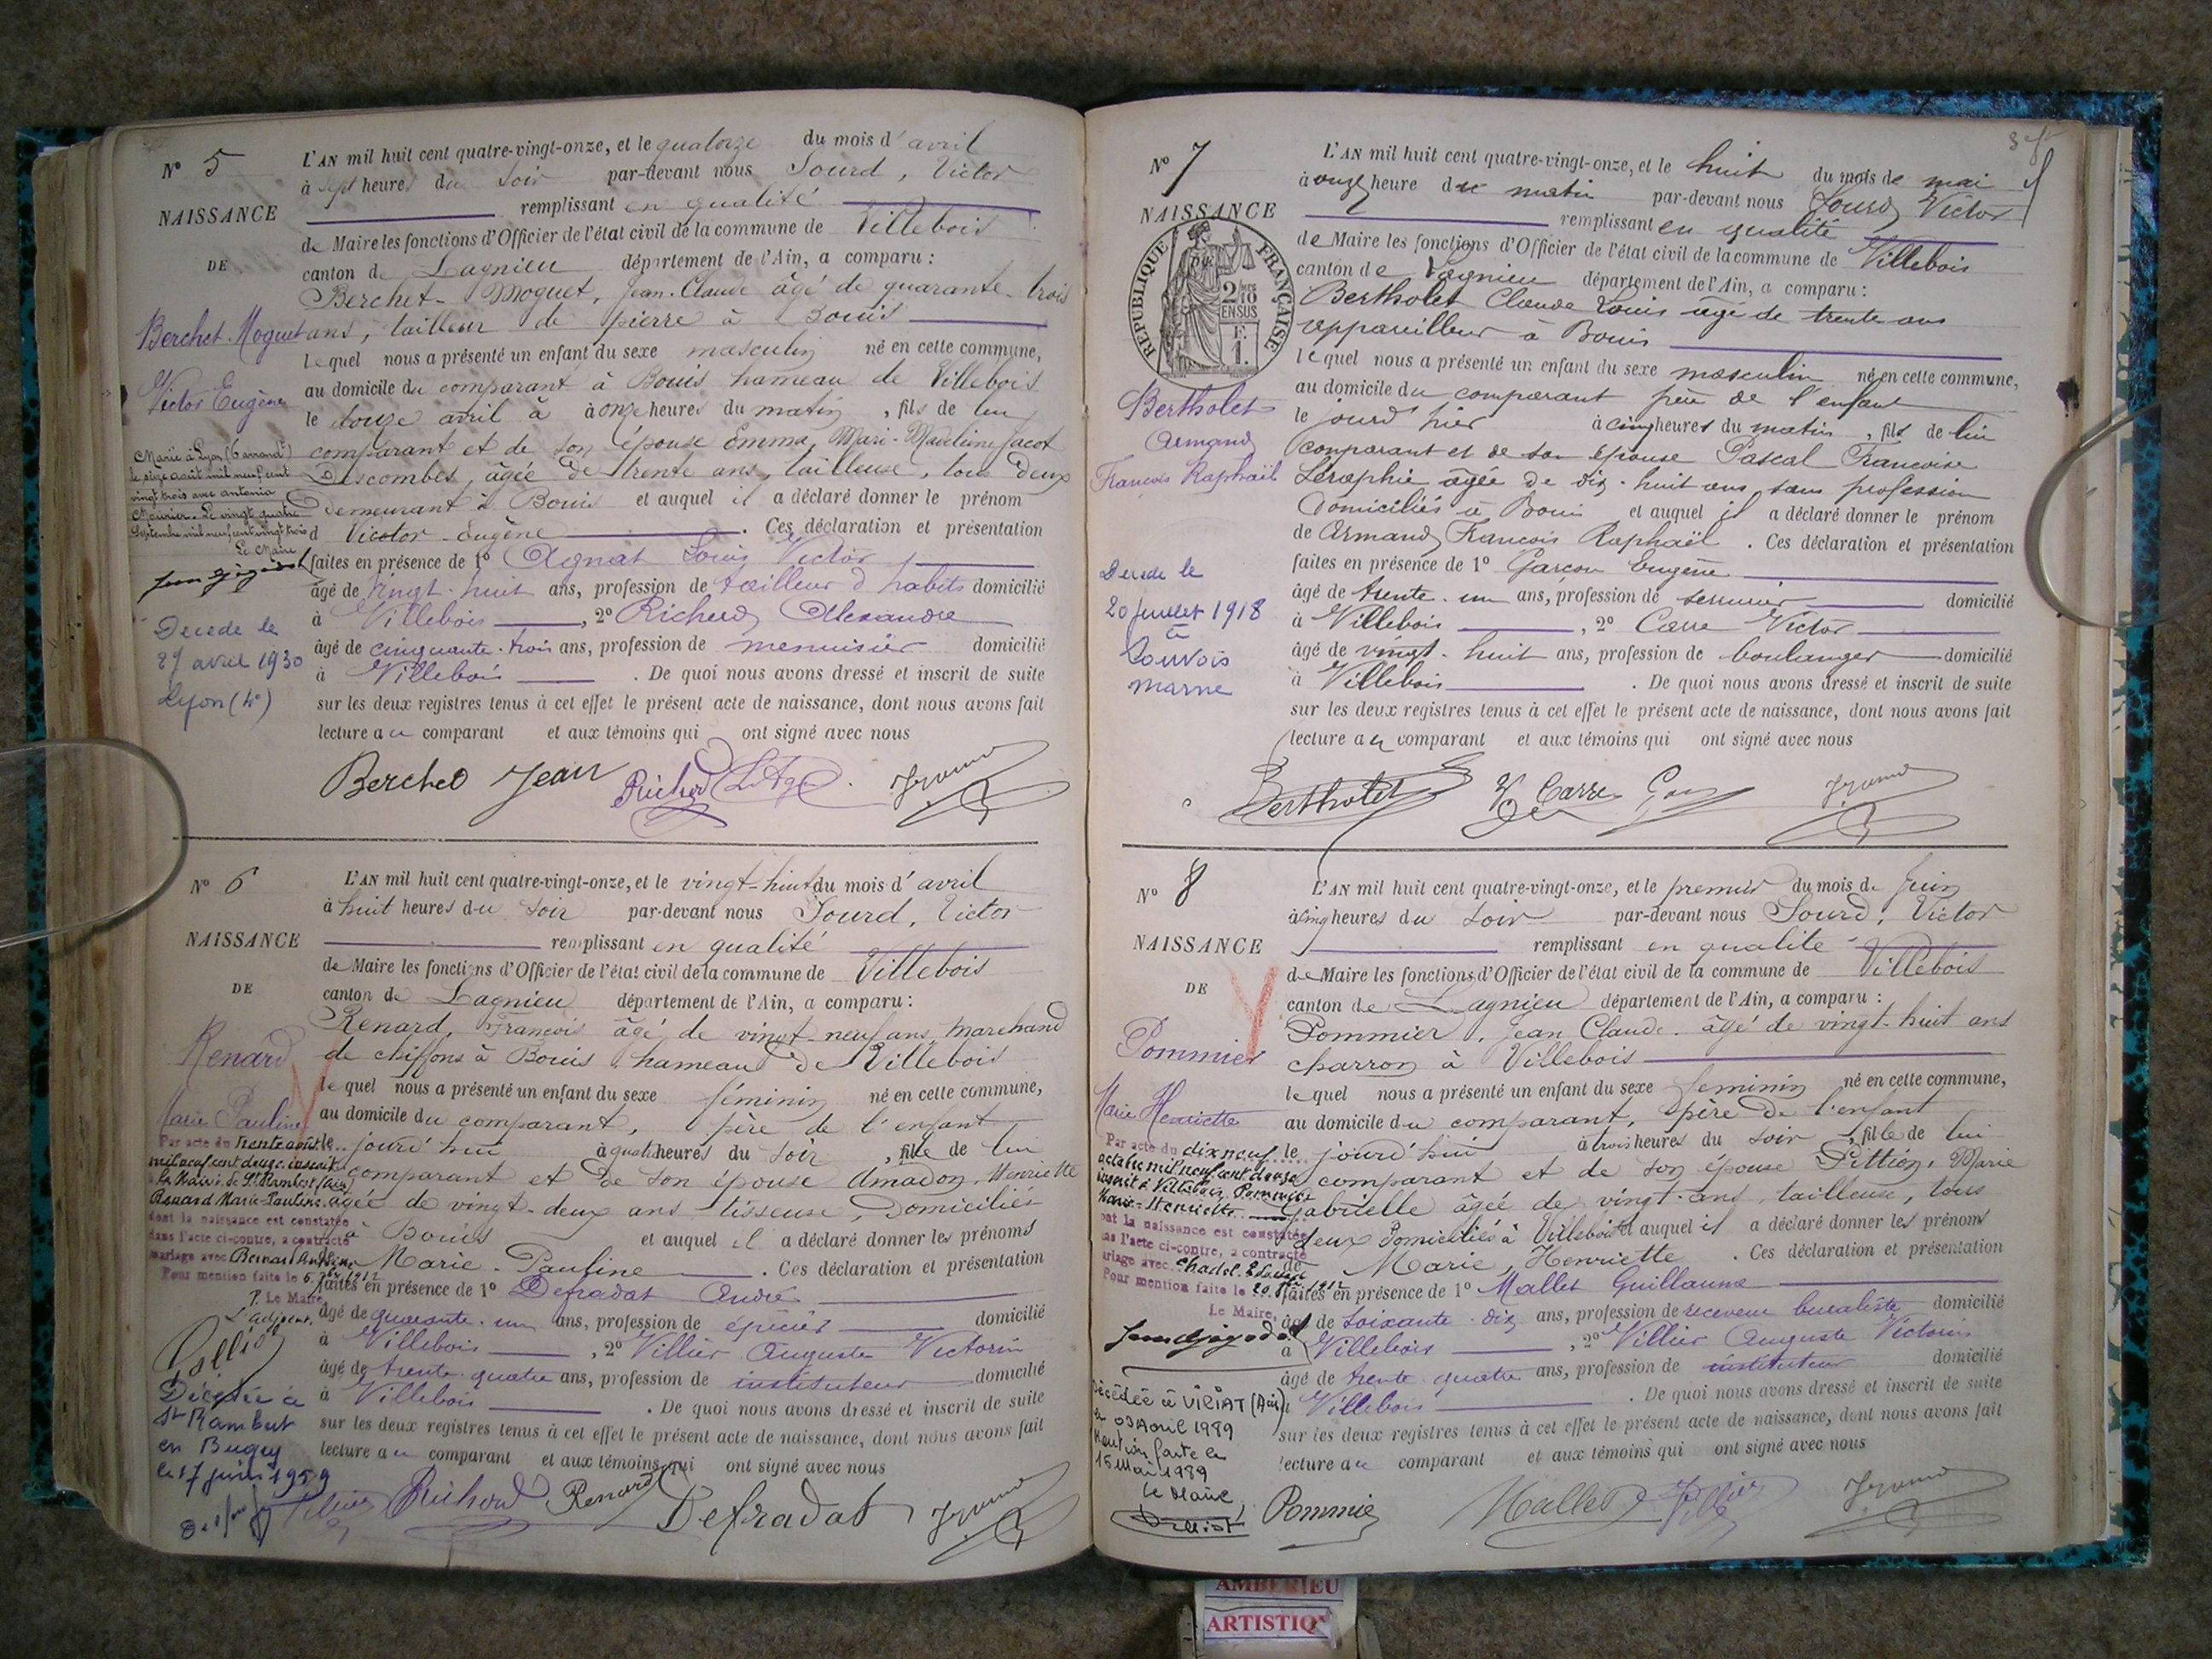 N° 5
NAISSANCE
DE
Berchet-Moguet
Victor Eugène
Marié à Lyon
le seize août mil neuf cent
vingt trois avec Antonia
Meunier. Le vingt quatre
Septembre mil neuf cent vingt trois
Le Maire
Décédé le
27 avril 1930
Lyon (4e)
L'AN mil huit cent quatre-vingt-onze, et le quatorze du mois d'avril
à sept heures du soir par-devant nous Sourd, Victor
remplissant en qualité
de Maire les fonctions d'Officier de l'état civil de la commune de Villebois
canton de Lagnieu département de l'Ain, a comparu :
Berchet-Moguet, Jean-Claude âgé de quarante-trois
ans, tailleur de pierre à Bouis
lequel nous a présenté un enfant du sexe masculin né en cette commune,
au domicile du comparant à Bouis hameau de Villebois
le douze avril à à onze heures du matin, fils de lui
comparant et de son épouse Emma, Mari-Madeleine Jacot
Descombes, âgée de trente ans, tailleuse, tous deux
demeurant à Bouis et auquel il a déclaré donner le prénom
d Victor-Eugène. Ces déclaration et présentation
faites en présence de 1° Agnat Louis Victor
âgé de vingt-huit ans, profession de tailleur d'habits domicilié
à Villebois, 2° Richerd Alexandre
âgé de cinquante-trois ans, profession de menuisier domicilié
à Villebois. De quoi nous avons dressé et inscrit de suite
sur les deux registres tenus à cet effet le présent acte de naissance, dont nous avons fait
lecture au comparant et aux témoins qui ont signé avec nous
Berchet Jean Richerd
N° 6
NAISSANCE
DE
Renard
Marie Pauline
Par acte du trente août
mil neuf cent douze inscrit
à la Mairie de St Rambert (Ain)
Renard Marie-Pauline
dont la naissance est constatée
dans l'acte ci-contre, a contracté
mariage avec Bernard
Pour mention faite le 6 7bre 1912
P. Le Maire
L'adjoint,
Décédée à
St Rambert
en Bugey
le 17 juin 1959
L'AN mil huit cent quatre-vingt-onze, et le vingt-huit du mois d'avril
à huit heures du soir par-devant nous Sourd, Victor
remplissant en qualité
de Maire les fonctions d'Officier de l'état civil de la commune de Villebois
canton de Lagnieu département de l'Ain, a comparu :
Renard, François âgé de vingt-neuf ans, marchand
de chiffons à Bouis hameau de Villebois
lequel nous a présenté un enfant du sexe féminin né en cette commune,
au domicile du comparant, père de l'enfant
le jourd'hui à quatre heures du soir, fille de lui
comparant et de son épouse Amadon, Henriette
âgée de vingt-deux ans tisseuse, domiciliés
à Bouis et auquel il a déclaré donner les prénoms
de Marie-Pauline. Ces déclaration et présentation
faites en présence de 1° Defradat André
âgé de quarante-un ans, profession de épicier domicilié
à Villebois, 2° Villier Auguste Victorin
âgé de trente-quatre ans, profession de instituteur domicilié
à Villebois. De quoi nous avons dressé et inscrit de suite
sur les deux registres tenus à cet effet le présent acte de naissance, dont nous avons fait
lecture au comparant et aux témoins qui ont signé avec nous
Villier Richerd Renard Defradat
N° 7
NAISSANCE
RÉPUBLIQUE FRANÇAISE
2/10 EN SUS
F. 1.
Bertholet
Armand
François Raphaël
Décédé le
20 juillet 1918
à
Louvois
Marne
L'AN mil huit cent quatre-vingt-onze, et le huit du mois de mai
à onze heure du matin par-devant nous Sourd Victor
remplissant en qualité
de Maire les fonctions d'Officier de l'état civil de la commune de Villebois
canton de Lagnieu département de l'Ain, a comparu :
Bertholet Claude Louis âgé de trente ans
appareilleur à Bouis
lequel nous a présenté un enfant du sexe masculin né en cette commune,
au domicile du comparant père de l'enfant
le jourd'hier à cinq heures du matin, fils de lui
comparant et de son épouse Pascal Francoise
Séraphie âgée de dix-huit ans sans profession
domiciliés à Bouis et auquel il a déclaré donner le prénom
de Armand François Raphaël. Ces déclaration et présentation
faites en présence de 1° Garçon Eugène
âgé de trente-un ans, profession de serrurier domicilié
à Villebois, 2° Carre Victor
âgé de vingt-huit ans, profession de boulanger domicilié
à Villebois. De quoi nous avons dressé et inscrit de suite
sur les deux registres tenus à cet effet le présent acte de naissance, dont nous avons fait
lecture au comparant et aux témoins qui ont signé avec nous
Bertholet V Carre
N° 8
NAISSANCE
DE
Pommier
Marie Henriette
Par acte du dix neuf
octobre mil neuf cent douze
inscrit à Villebois, Pommier
Marie-Henriette
dont la naissance est constatée
dans l'acte ci-contre, a contracté
mariage avec Chadel
Pour mention faite le 20 1912
Le Maire,
Décédée à VIRIAT (Ain)
le 03 Avril 1989
Mention faite le
15 Mai 1989
Le Maire,
L'AN mil huit cent quatre-vingt-onze, et le premier du mois de Juin
à cinq heures du soir par-devant nous Sourd, Victor
remplissant en qualité
de Maire les fonctions d'Officier de l'état civil de la commune de Villebois
canton de Lagnieu département de l'Ain, a comparu :
Pommier, Jean Claude âgé de vingt-huit ans
charron à Villebois
lequel nous a présenté un enfant du sexe feminin né en cette commune,
au domicile du comparant, père de l'enfant
le jourd'hui à trois heures du soir, fille de lui
comparant et de son épouse Pittion, Marie
Gabrielle âgée de vingt-ans, tailleuse, tous
deux domiciliés à Villebois et auquel il a déclaré donner les prénoms
de Marie, Henriette. Ces déclaration et présentation
faites en présence de 1° Mallet Guillaume
âgé de soixante-dix ans, profession de receveur buraliste domicilié
à Villebois, 2° Villier Auguste Victorin
âgé de trente-quatre ans, profession de instituteur domicilié
à Villebois. De quoi nous avons dressé et inscrit de suite
sur les deux registres tenus à cet effet le présent acte de naissance, dont nous avons fait
lecture au comparant et aux témoins qui ont signé avec nous
Pommier Mallet Villier
AMBERIEU
ARTISTIQ